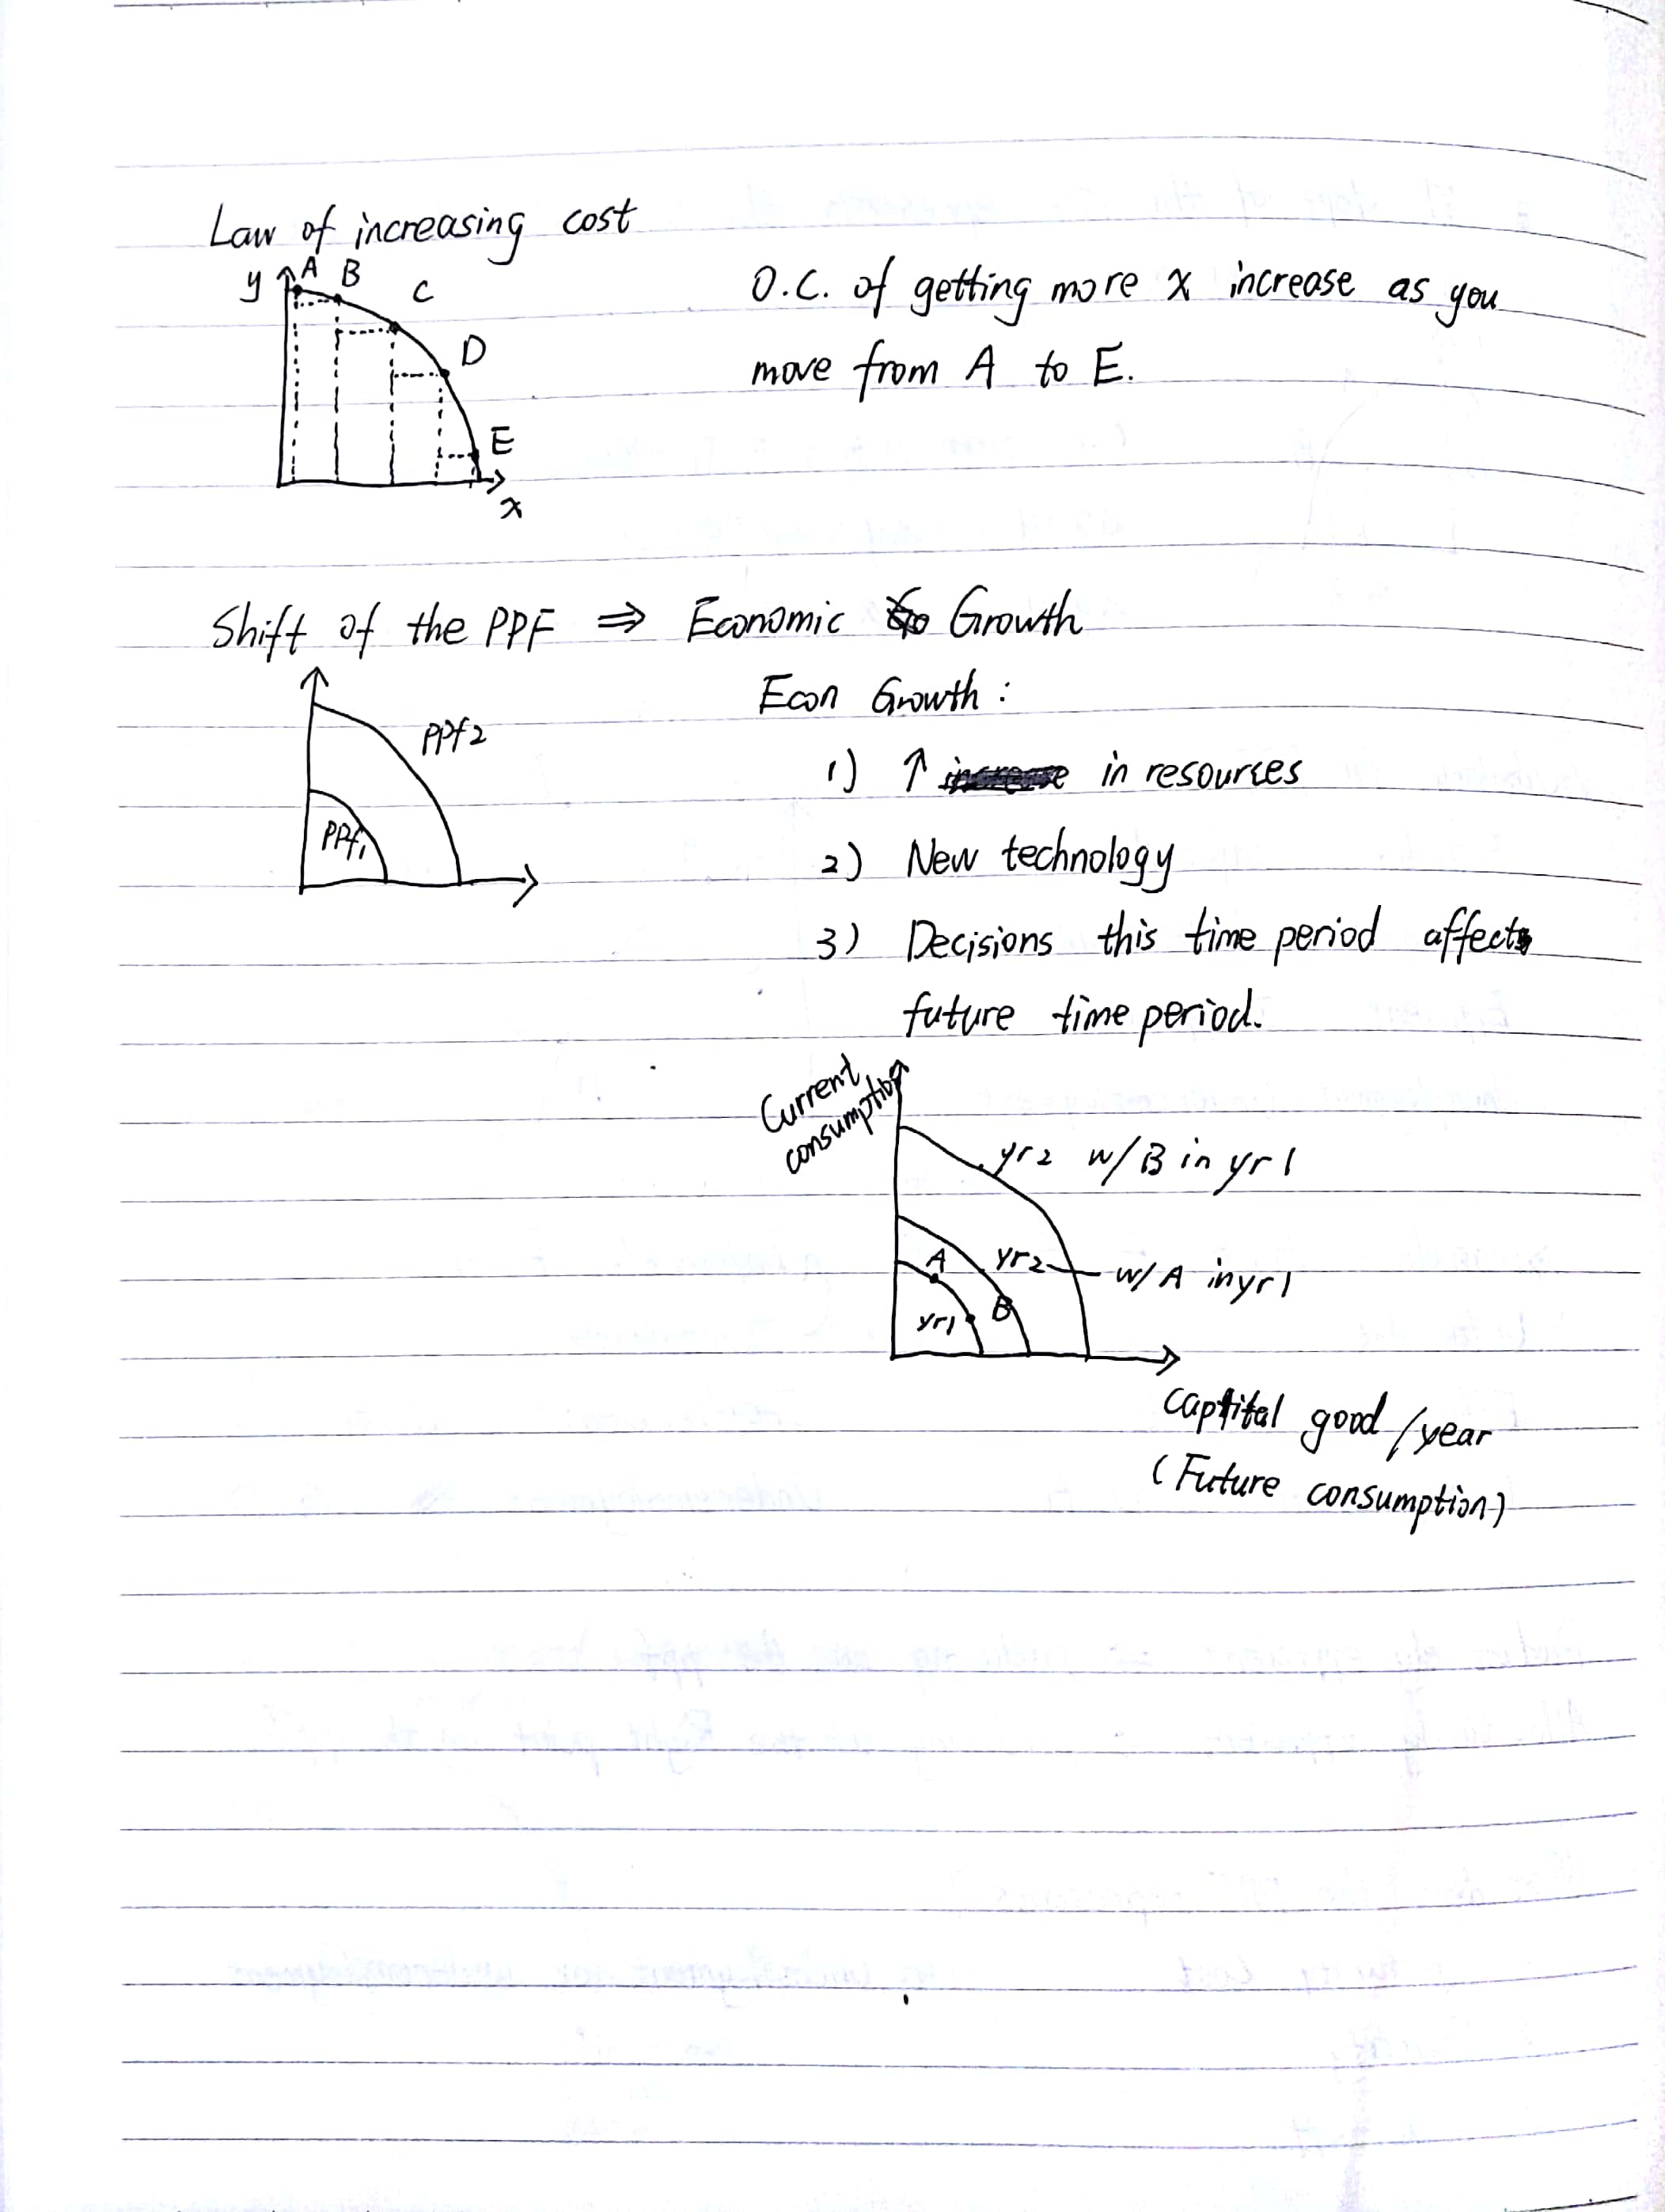 Law of increasing cost
y A B C D E x
O.C. of getting more x increase as you
move from A to E.
Shift of the PPF ⇒ Economic Growth
PPf2
PPf1
Econ Growth :
1) ↑ in resources
2) New technology
3) Decisions this time period affect
future time period.
Current
consumption
yr2 w/ B in yr 1
A yr2 w/ A in yr 1
yr1 B
capital good / year
(Future consumption)